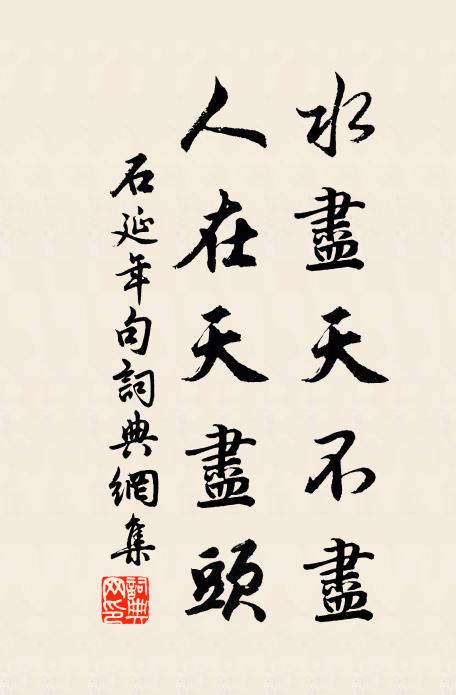 水盡天不盡
人在天盡頭
石延年句詞典網集
詞典网印